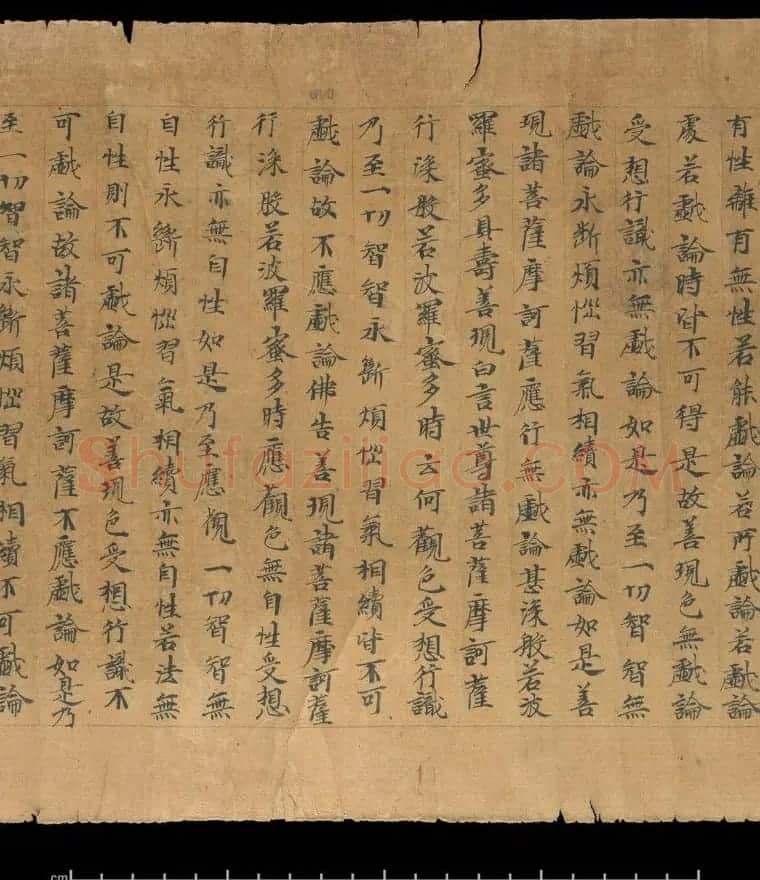 有性離有無性若能戲論若所戲論若戲論
處若戲論時皆不可得是故善現色無戲論
受想行識亦無戲論如是乃至一切智智無
戲論永斷煩惱習氣相續亦無戲論如是善
現諸菩薩摩訶薩應行無戲論甚深般若波
羅蜜多具壽善現白言世尊諸菩薩摩訶薩
行深般若波羅蜜多時云何觀色受想行識
乃至一切智智永斷煩惱習氣相續皆不可
戲論故不應戲論佛告善現諸菩薩摩訶薩
行深般若波羅蜜多時應觀色無自性受想
行識亦無自性如是乃至應觀一切智智無
自性永斷煩惱習氣相續亦無自性若法無
自性則不可戲論是故善現色受想行識不
可戲論故諸菩薩摩訶薩不應戲論如是乃
至一切智智永斷煩惱習氣相續不可戲論
Shufaziliao.COM
cm